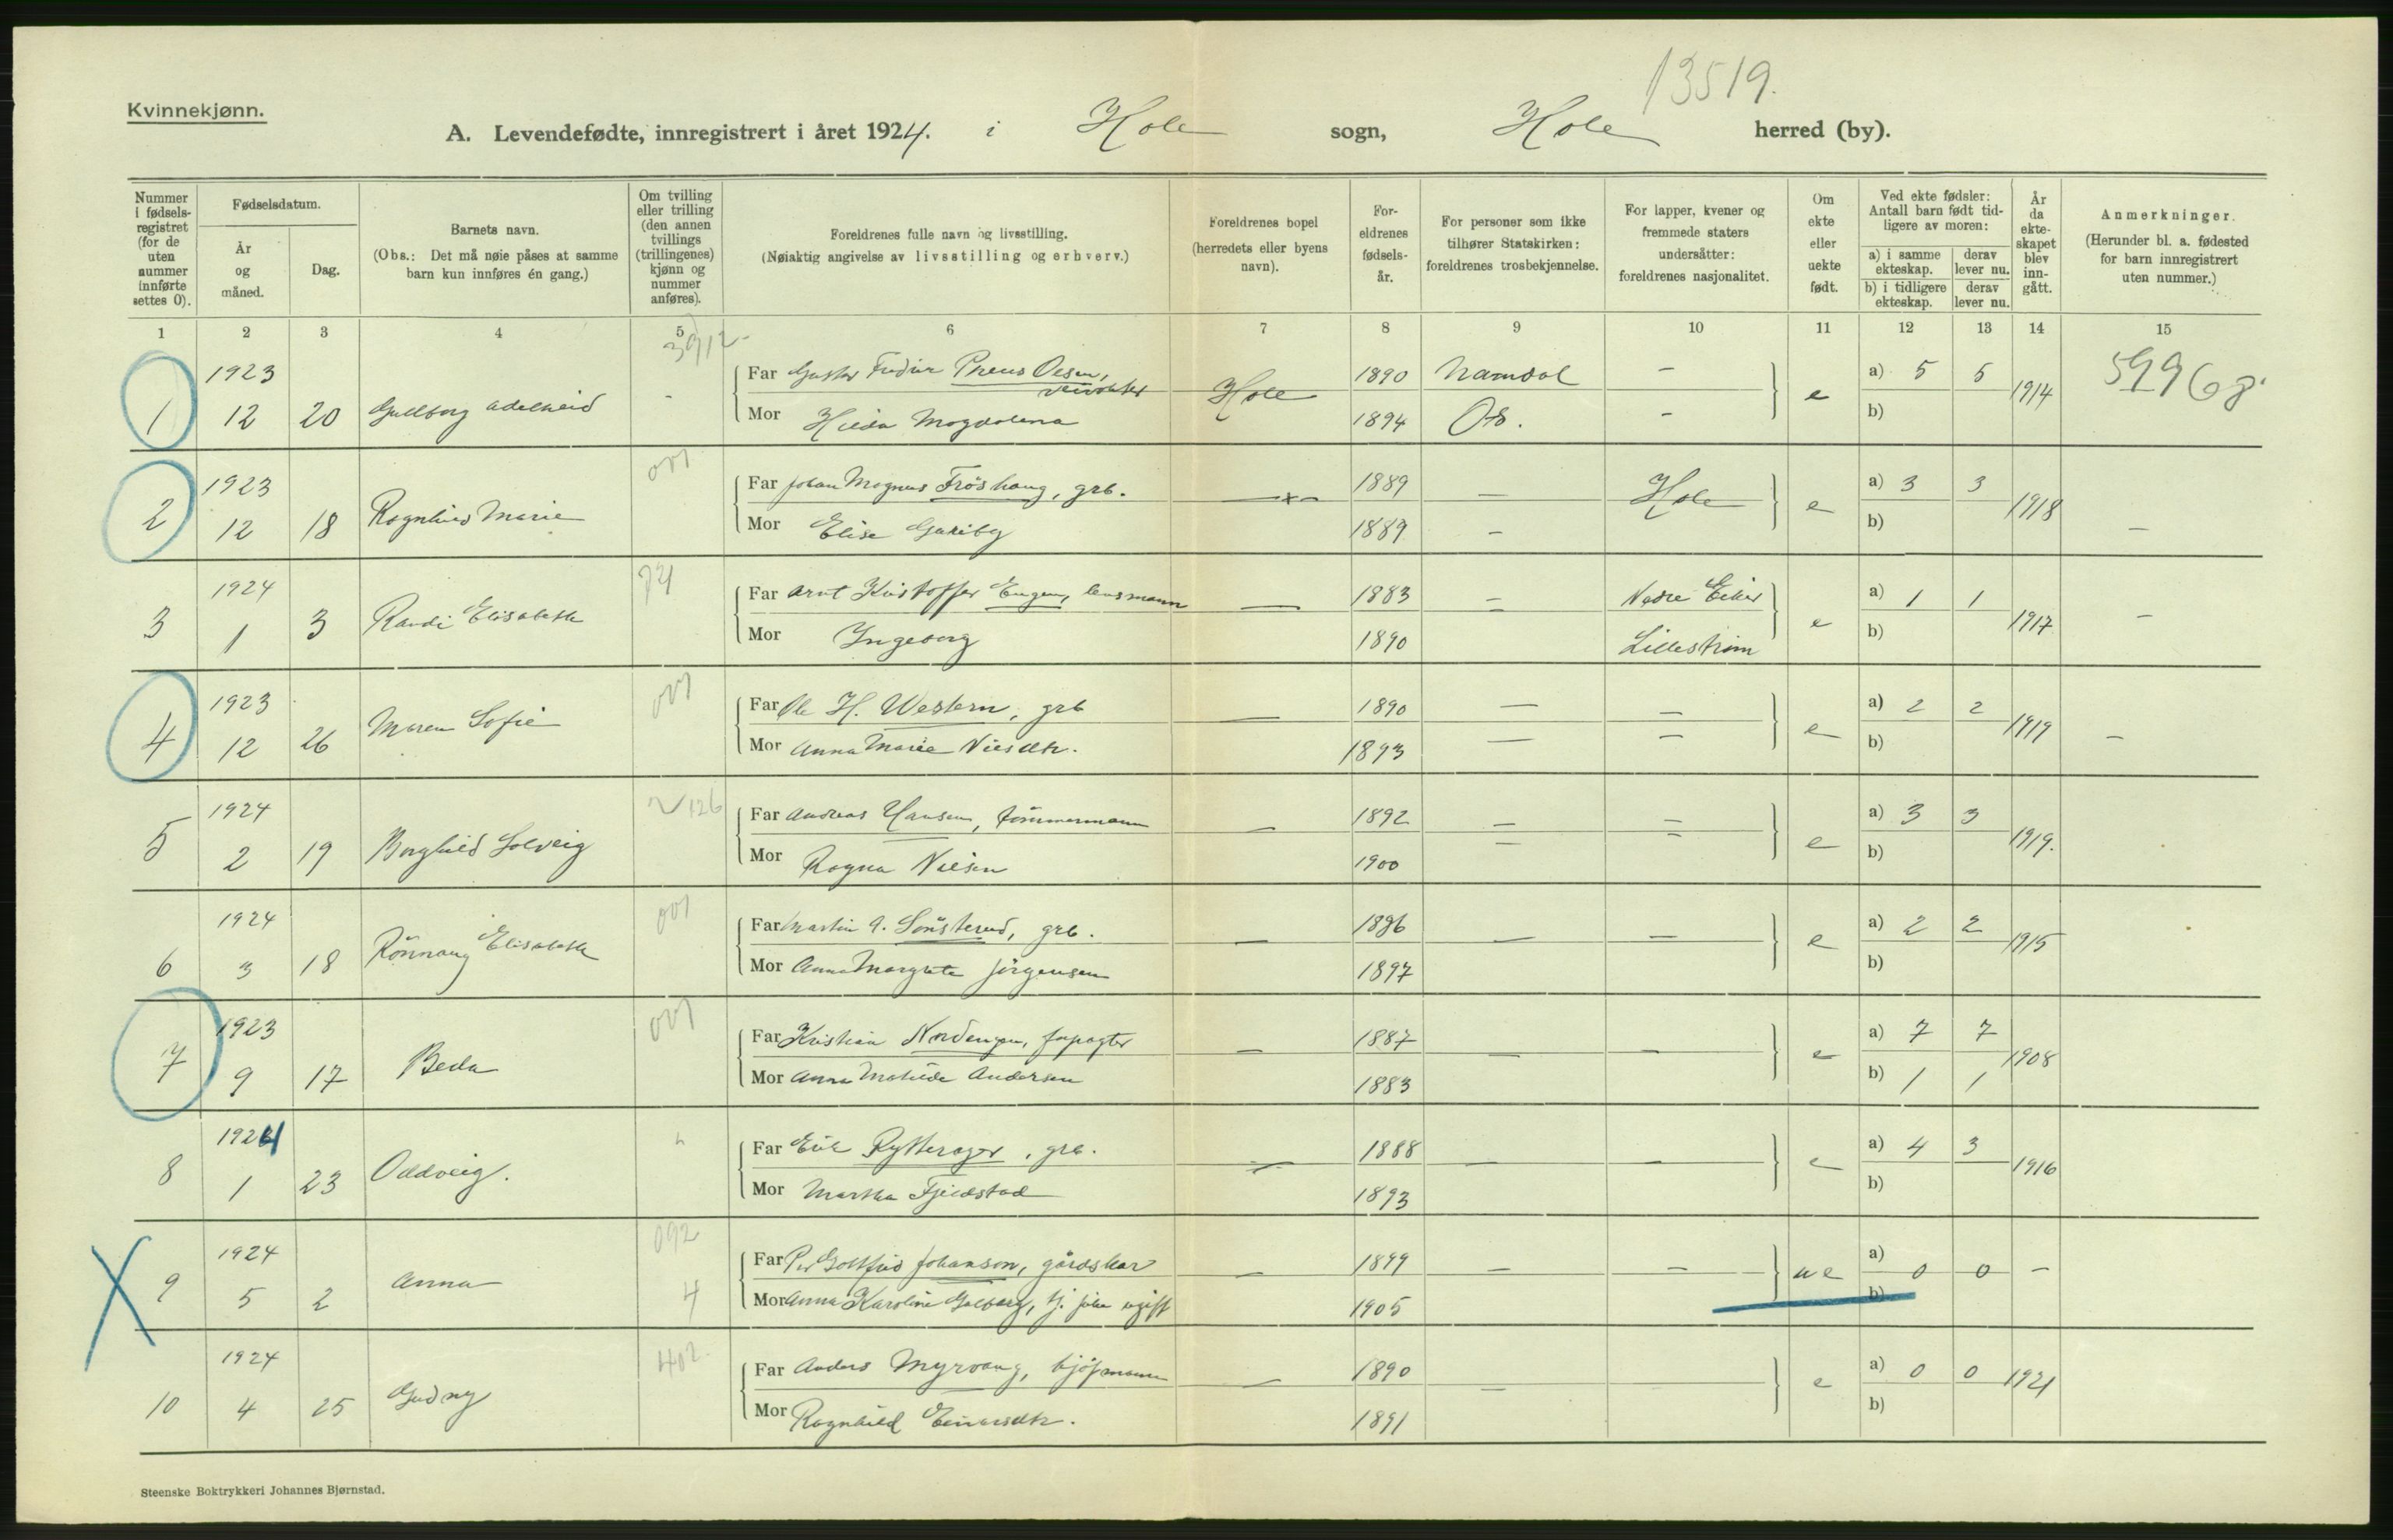 13519.
Kvinnekjønn.
A. Levendefødte, innregistrert i året 1924. i Hole sogn, Hole herred (by).
Nummer i fødsels-registret (for de uten nummer innførte settes 0).
Fødselsdatum.
År og måned.
Dag.
Barnets navn.
(Obs.: Det må nøie påses at samme barn kun innføres én gang.)
Om tvilling eller trilling (den annen tvillings (trillingenes) kjønn og nummer anføres).
Foreldrenes fulle navn og livsstilling.
(Nøiaktig angivelse av livsstilling og erhverv.)
Foreldrenes bopel (herredets eller byens navn).
For-eldrenes fødsels-år.
For personer som ikke tilhører Statskirken: foreldrenes trosbekjennelse.
For lapper, kvener og fremmede staters undersåtter: foreldrenes nasjonalitet.
Om ekte eller uekte født.
Ved ekte fødsler: Antall barn født tid-ligere av moren:
a) i samme ekteskap.
derav lever nu.
b) i tidligere ekteskap.
derav lever nu.
År da ekte-skapet blev inn-gått.
Anmerkninger.
(Herunder bl. a. fødested for barn innregistrert uten nummer.)
1 2 3 4 5 6 7 8 9 10 11 12 13 14 15
1923 Far 1890 Namdal – a) 5 5
1 12 20 Gullborg Adelheid - Hole e 1914 59968
Mor Hilda Magdalena 1894 Os. – b)
001
1923 Far Johan Magnus Fröshaug, grb. 1889 – Hole a) 3 3
2 12 18 Ragnhild Marie e 1918 –
Mor Elise 1889 – b)
1924 Far Arnt Kristoffer Engen, lensmann – 1883 – Nedre Eiker a) 1 1
3 1 3 Randi Elisabeth e 1917 –
Mor Ingeborg 1890 Lillestrøm b)
001
1923 Far Ole H. Western, grb – 1890 – – a) 2 2
4 12 26 Maren Sofie e 1919 –
Mor Anna Marie Nilsdtr. 1893 – – b)
126
1924 Far Andreas Hansen, tömmermann – 1892 – – a) 3 3
5 2 19 Borghild Solveig e 1919.
Mor Ragna Nilsen 1900 – – b)
001
1924 Far Martin A. Sönsterud, grb. – 1886 – – a) 2 2
6 3 18 Rönnaug Elisabeth e 1915
Mor Anna Margrete Jörgensen 1897 b)
001
1923 Far Kristian Nordengen, forpagter – 1887 – – a) 7 7
7 9 17 Beda e 1908
Mor Anna Matilde Andersen 1883 b) 1 1
1924 Far Erik Rytterager, grb. – 1888 – – a) 4 3
8 1 23 Oddveig. e 1916
Mor Martha Fjeldstad 1893 b)
092
1924 Far Per Gottfrid Johanson, gårdskar – 1899 – – a)
9 5 2 Anna 4 ue 0 0 –
Mor Anna Karoline 1905 b)
402
1924 Far Anders Myrvang, kjöpmann – 1890 – a) 0 0
10 4 25 Gudny e 1921
Mor Ragnhild Einarsdtr. 1891 b)
Steenske Boktrykkeri Johannes Bjørnstad.